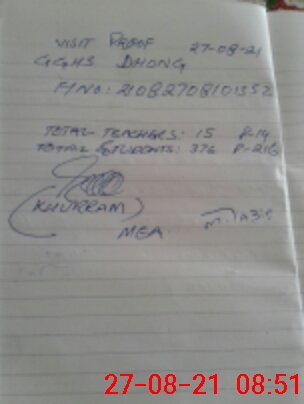 VISIT PROOF 27-08-21
GGHS DHONG
TOTAL TEACHERS: 15 P-14
TOTAL STUDENTS: 376
(KHURRAM)
MEA
27-08-21 08:51